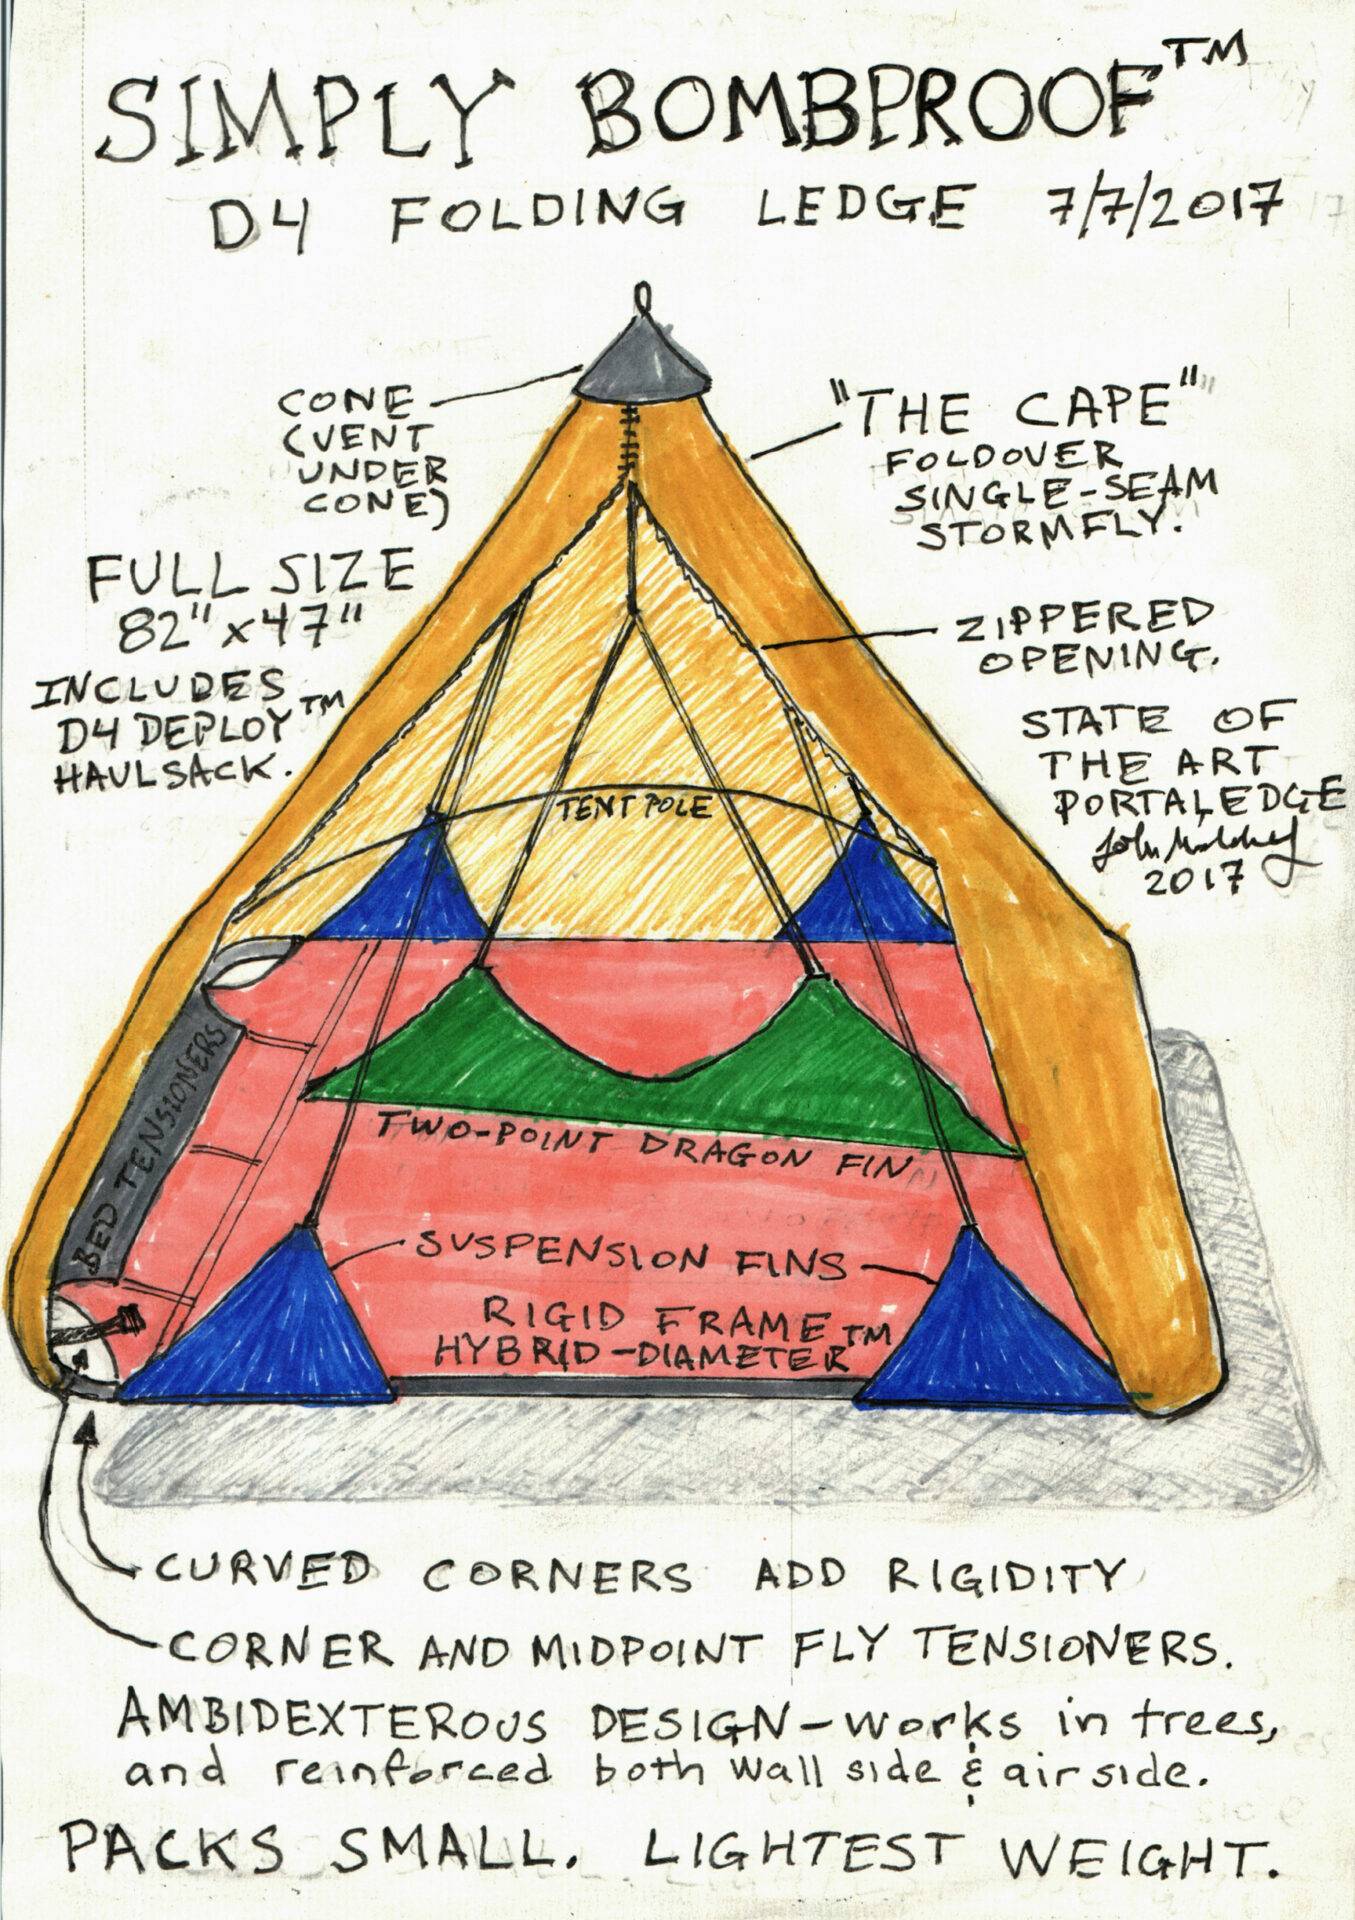 SIMPLY BOMBPROOF™
D4 FOLDING LEDGE 7/7/2017
CONE
(VENT
UNDER
CONE)
"THE CAPE"
FOLDOVER
SINGLE-SEAM
STORMFLY.
FULL SIZE
82" x 47"
INCLUDES
D4 DEPLOY™
HAULSACK.
ZIPPERED
OPENING.
STATE OF
THE ART
PORTALEDGE
2017
TENT POLE
BED TENSIONERS
TWO-POINT DRAGON FIN
SUSPENSION FINS
RIGID FRAME
HYBRID-DIAMETER™
CURVED CORNERS ADD RIGIDITY
CORNER AND MIDPOINT FLY TENSIONERS.
AMBIDEXTEROUS DESIGN-works in trees,
and reinforced both wall side & air side.
PACKS SMALL. LIGHTEST WEIGHT.